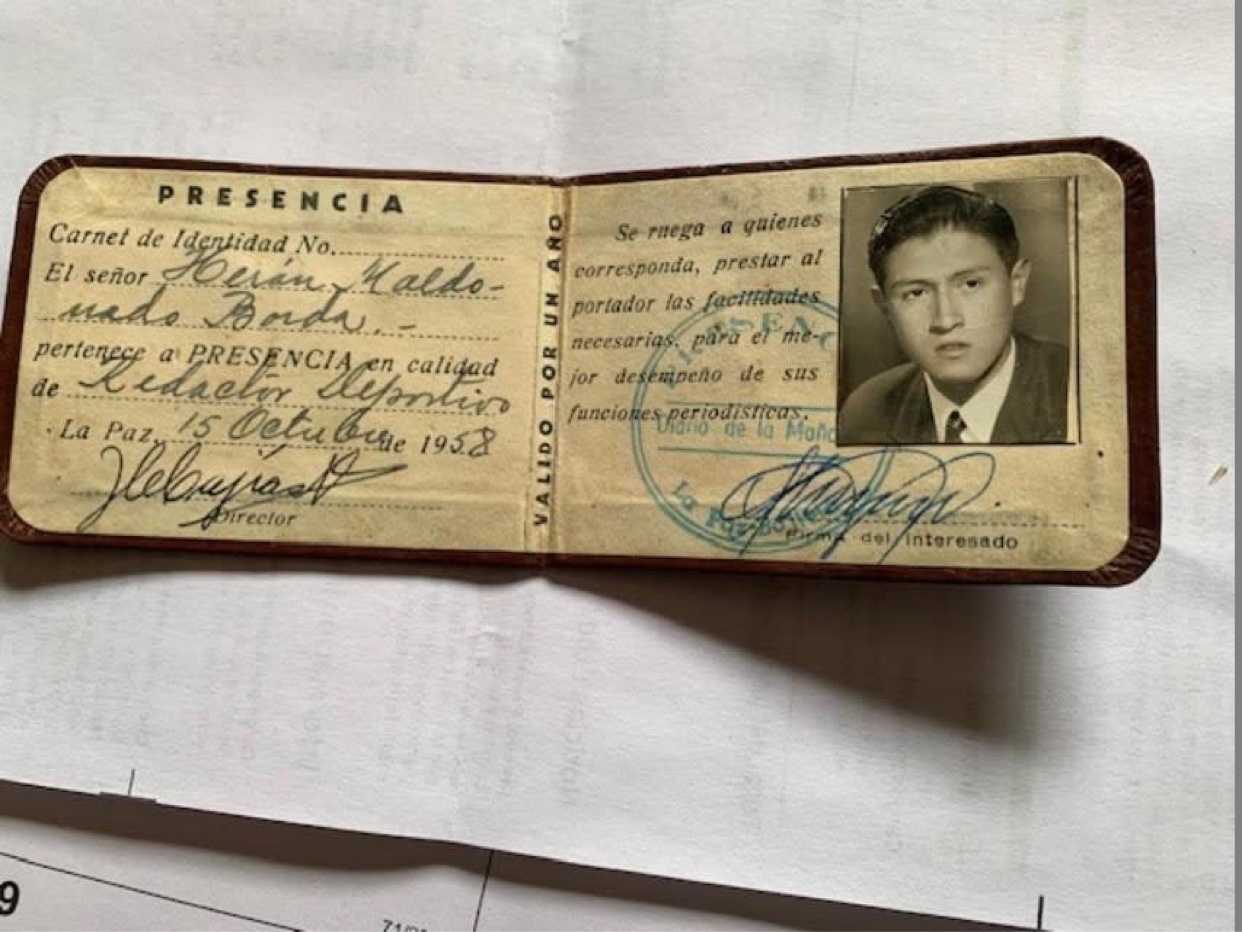 PRESENCIA
Carnet de Identidad No.
El señor Herán Maldo-
nado Borda.-
pertenece a PRESENCIA en calidad
de Redactor Deportivo
La Paz, 15 Octubre de 1958
Director
VALIDO POR UN AÑO
Se ruega a quienes
corresponda, prestar al
portador las facilidades
necesarias, para el me-
jor desempeño de sus
funciones periodísticas.
Diario de la Maña
La Paz-Bolivia
Firma del interesado
9